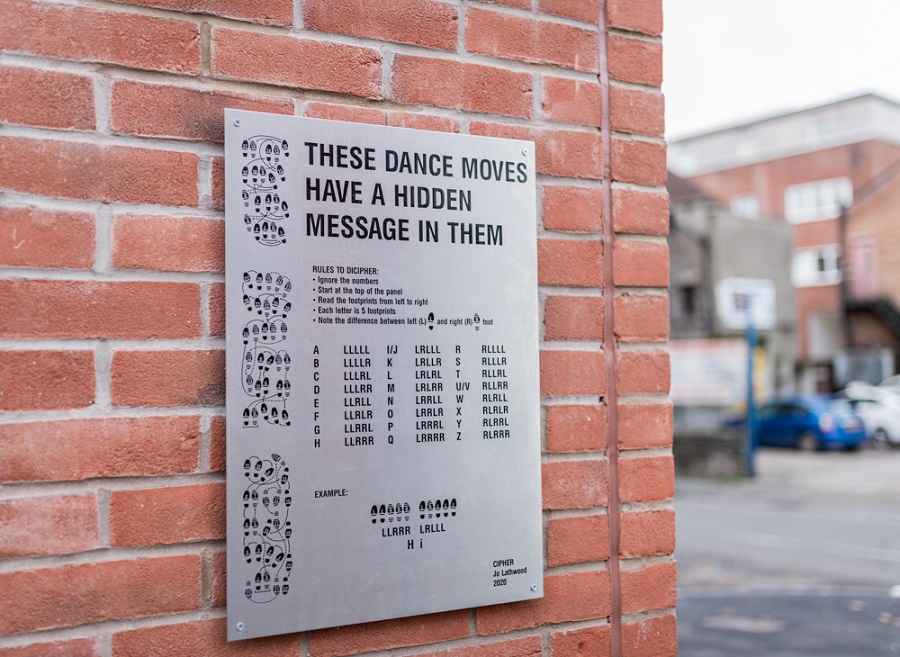 THESE DANCE MOVES
HAVE A HIDDEN
MESSAGE IN THEM
RULES TO DICIPHER:
• Ignore the numbers
• Start at the top of the panel
• Read the footprints from left to right
• Each letter is 5 footprints
• Note the difference between left (L) and right (R) foot
A LLLLL I/J LRLLL R RLLLL
B LLLLR K LRLLR S RLLLR
C LLLRL L LRLRL T RLLRL
D LLLRR M LRLRR U/V RLLRR
E LLRLL N LRRLL W RLRLL
F LLRLR O LRRLR X RLRLR
G LLRRL P LRRRL Y RLRRL
H LLRRR Q LRRRR Z RLRRR
EXAMPLE:
LLRRR LRLLL
H i
CIPHER
Jo Lathwood
2020